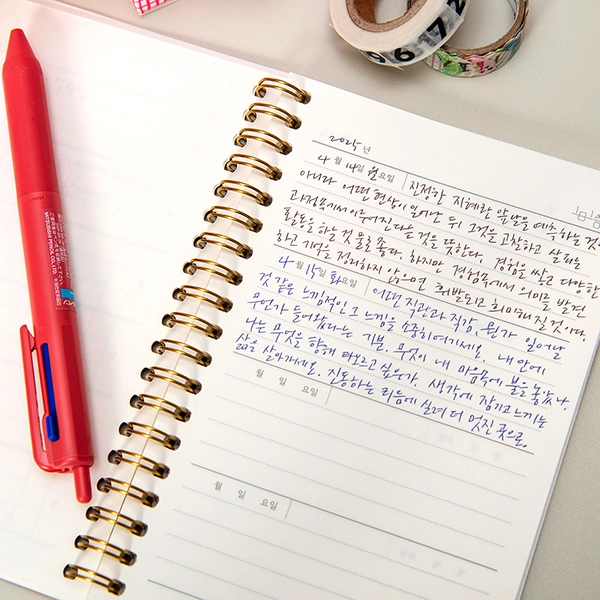 2025년
4월 14일 월요일 진정한 지혜란 앞날을 예측하는 것이
아니라 어떤 현상이 일어난 뒤 그것을 고찰하고 살피는
과정 속에서 이루어진다는 것을 뜻한다. 경험을 쌓고 다양한
활동을 하는 것 물론 좋다. 하지만 경험 속에서 의미를 발견
하고 기억을 정리하지 않으면 휘발되고 희미해질 것이다.
4월 15일 화요일 어떤 직관과 직감, 뭔가 일어날
것 같은 느낌적인 그 느낌을 소중히 여기세요. 내 안에
무언가 들어왔다는 기분. 무엇이 내 마음 속에 불을 놓았나,
나는 무엇을 향해 타오르고 싶은가. 생각에 잠기고 느끼는
삶을 살아가세요. 진동하는 리듬에 실려 더 멋진 곳으로.
월 일 요일
월 일 요일
MITSUBISHI PENCIL CO., LTD.
6 7 2